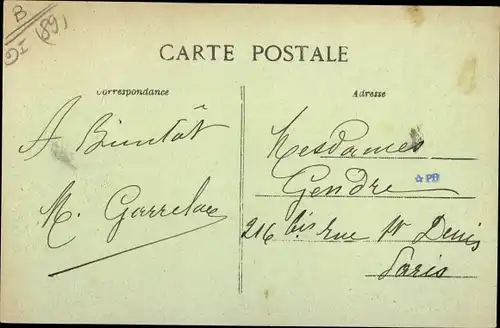 B
DI (89)
CARTE POSTALE
Correspondance
Adresse
A Bientôt
M.
Mesdames
Gendre
☆PB
216 bis rue St Denis
Paris